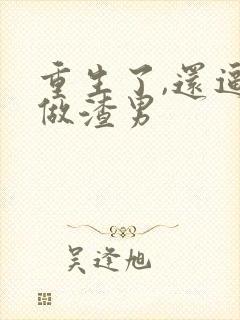 重生了,還逼
做渣男
吴逢旭